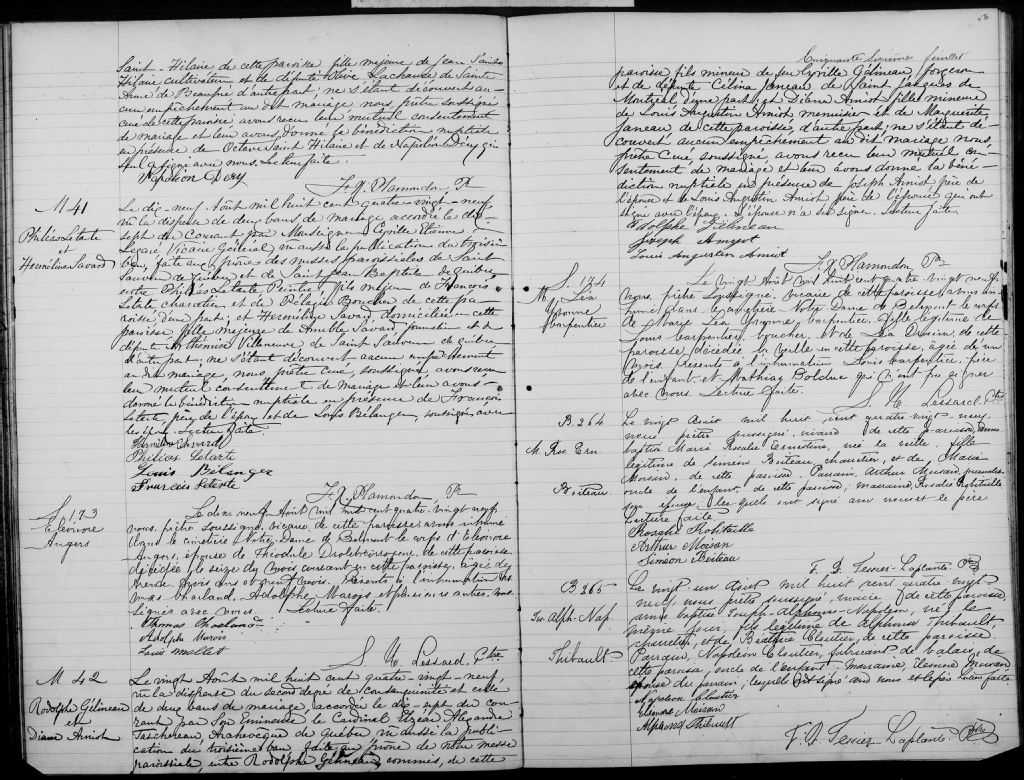 Saint-Hilaire de cette paroisse, fille mejeure, de Jean Saint-
Hilaire cultivateur et de défunte Olive Lachance de Sainte
Anne de Beaupré d'autre part; ne s'étant découvert au-
cun empêchement au dit mariage nous prêtre soussigné
curé de cette paroisse avons reçu leur mutuel consentement
de mariage et leur avons donné la bénédiction nuptiale
en présence de Octave Saint Hilaire et de Napoléon Déry qui
seul a signé avec nous. Lecture faite.
Napoléon Dery
F. X. Plamondon Ptr
M 41
Philéas Letarte
et
Herméline Savard
Le dix-neuf Août mil huit cent quatre-vingt-neuf
vu la dispense de deux bans de mariage accordée le dix-
sept du Courant par Monseigneur Cyrille Etienne
Legaré Vicaire Général vu aussi la publication du troisième
ban, faite au prône des messes paroissiales de Saint
Sauveur de Québec et de Saint Jean Baptiste de Québec
entre Philéas Letarte Peintre, fils mejeur de François
Letarte charretier et de Pélagie Boucher de cette pa-
roisse d'une part; et Herméline Savard domiciliée en cette
paroisse, fille mejeure de Savard, journalier et de
défunte Arthémise Villeneuve de Saint Sauveur de Québec
d'autre part; ne s'étant découvert aucun empêchement
au dit mariage nous, prêtre Curé, soussigné, avons reçu
leur mutuel consentement de mariage et leur avons
donné la bénédiction nuptiale en présence de François
Letarte, père de l'époux et de Louis Bélanger, soussignés avec
les époux. Lecture faite.
Herméline Savard
Philias Letarte
Louis Bélanger
Francois Letarte
F. X. Plamondon Ptr
S. 173
Eléonore
Angers
Le dix neuf Août mil huit cent quatre-vingt-neuf
nous, prêtre soussigné, vicaire de cette paroisse avons inhumé
dans le cimetière Notre-Dame de Belmont le corps d'Eléonore
Angers, épouse de Théodule Drolet, de cette paroisse
décédée le seize du mois courant en cette paroisse, agée de
trente trois ans et mois. Présents à l'inhumation Tho-
mas Charland, Adolphe Marois et plusieurs autres sous-
signés avec nous. Lecture faite.
Thomas Charland
Adolph Marois
Louis Mellet
S. U. Lessard, Ptre
M 42
Rodolphe Gélineau
et
Diana Amiot
Le vingt Août mil huit cent quatre-vingt-neuf,
vu la dispense du second degré de consanguinité et celle
de deux bans de mariage, accordée le dix-sept du cou-
rant par Son Eminence le Cardinal Elzéar Alexandre
Taschereau, Archevêque de Québec vu aussi la publi-
cation du troisième ban faite au prône de notre messe
paroissiale, entre Rodolphe Gélineau, commis, de cette
56
Cinquante sixième feuillet
paroisse, fils mineur de feu Cyrille Gélineau, forgeron
et de défunte Célina Janeau de Saint Jacques de
Montréal d'une part; et Diana Amiot fille mineure
de Louis Augustin Amiot, menuisier et de Marguerite
Janeau de cette paroisse, d'autre part; ne s'étant dé-
couvert aucun empêchement au dit mariage nous,
prêtre Curé, soussigné, avons reçu leur mutuel con-
sentement de mariage et leur avons donné la béné-
diction nuptiale en présence de Joseph Amiot frère de
l'épouse et de Louis Augustin Amiot père de l'épouse qui ont
signé avec l'époux. L'épouse n'a su signer. Lecture faite.
Rodolphe Gélineau
Joseph Amyot
Louis Augustin Amiot
F. X. Plamondon Ptr
S. 174
M. Léa
Yvonne
Carpentier
Le vingt Août mil huit cent quatre vingt neuf
nous, prêtre soussigné, vicaire de cette paroisse avons in-
humé dans le cimetière Notre Dame de Belmont le corps
de Marie Léa Yvonne Carpentier, fille légitime de
Louis Carpentier, boucher, et de de cette
paroisse, décédée la veille en cette paroisse, agée de un
mois. Présents à l'inhumation Louis Carpentier, père
de l'enfant, et Mathias Bolduc qui n'ont pu signer
avec nous. Lecture faite.
S. U. Lessard Ptre
B. 264
M. Ros. Ern.
Boiteau
Le vingt Août mil huit cent quatre-vingt neuf,
nous prêtre soussigné, vicaire de cette paroisse avons
baptisé Marie Rosalie Ernestine née la veille, fille
légitime de Siméon Boiteau, charretier, et de Marie
Moisan, de cette paroisse. Parrain, Arthur Moisan, journalier
oncle de l'enfant, de cette paroisse; marraine, Rosalie Robitaille
son épouse, lesquels ont signé avec nous et le père
Lecture faite.
Rosalie Robitaille
Arthur Moisan
Siméon Boiteau
F. D. Tessier-Laplante Ptre
B 265
Jos. Alph. Nap.
Thibault
Le vingt un Août mil huit cent quatre vingt
neuf, nous prêtre soussigné, vicaire de cette paroisse,
avons baptisé Joseph-Alphonse-Napoléon, né le
même jour, fils légitime de Alphonse Thibault,
charretier, et de Béatrice Cloutier, de cette paroisse.
Parrain, Napoléon Cloutier, fabricant de balais, de
cette paroisse, oncle de l'enfant. marraine, Eléonore Moisan
épouse du parrain, lesquels ont signé avec nous et le père. Lecture faite
Napoléon Cloutier
Eléonore Moisan
Alphonse Thibault
F. D. Tessier-Laplante Ptre